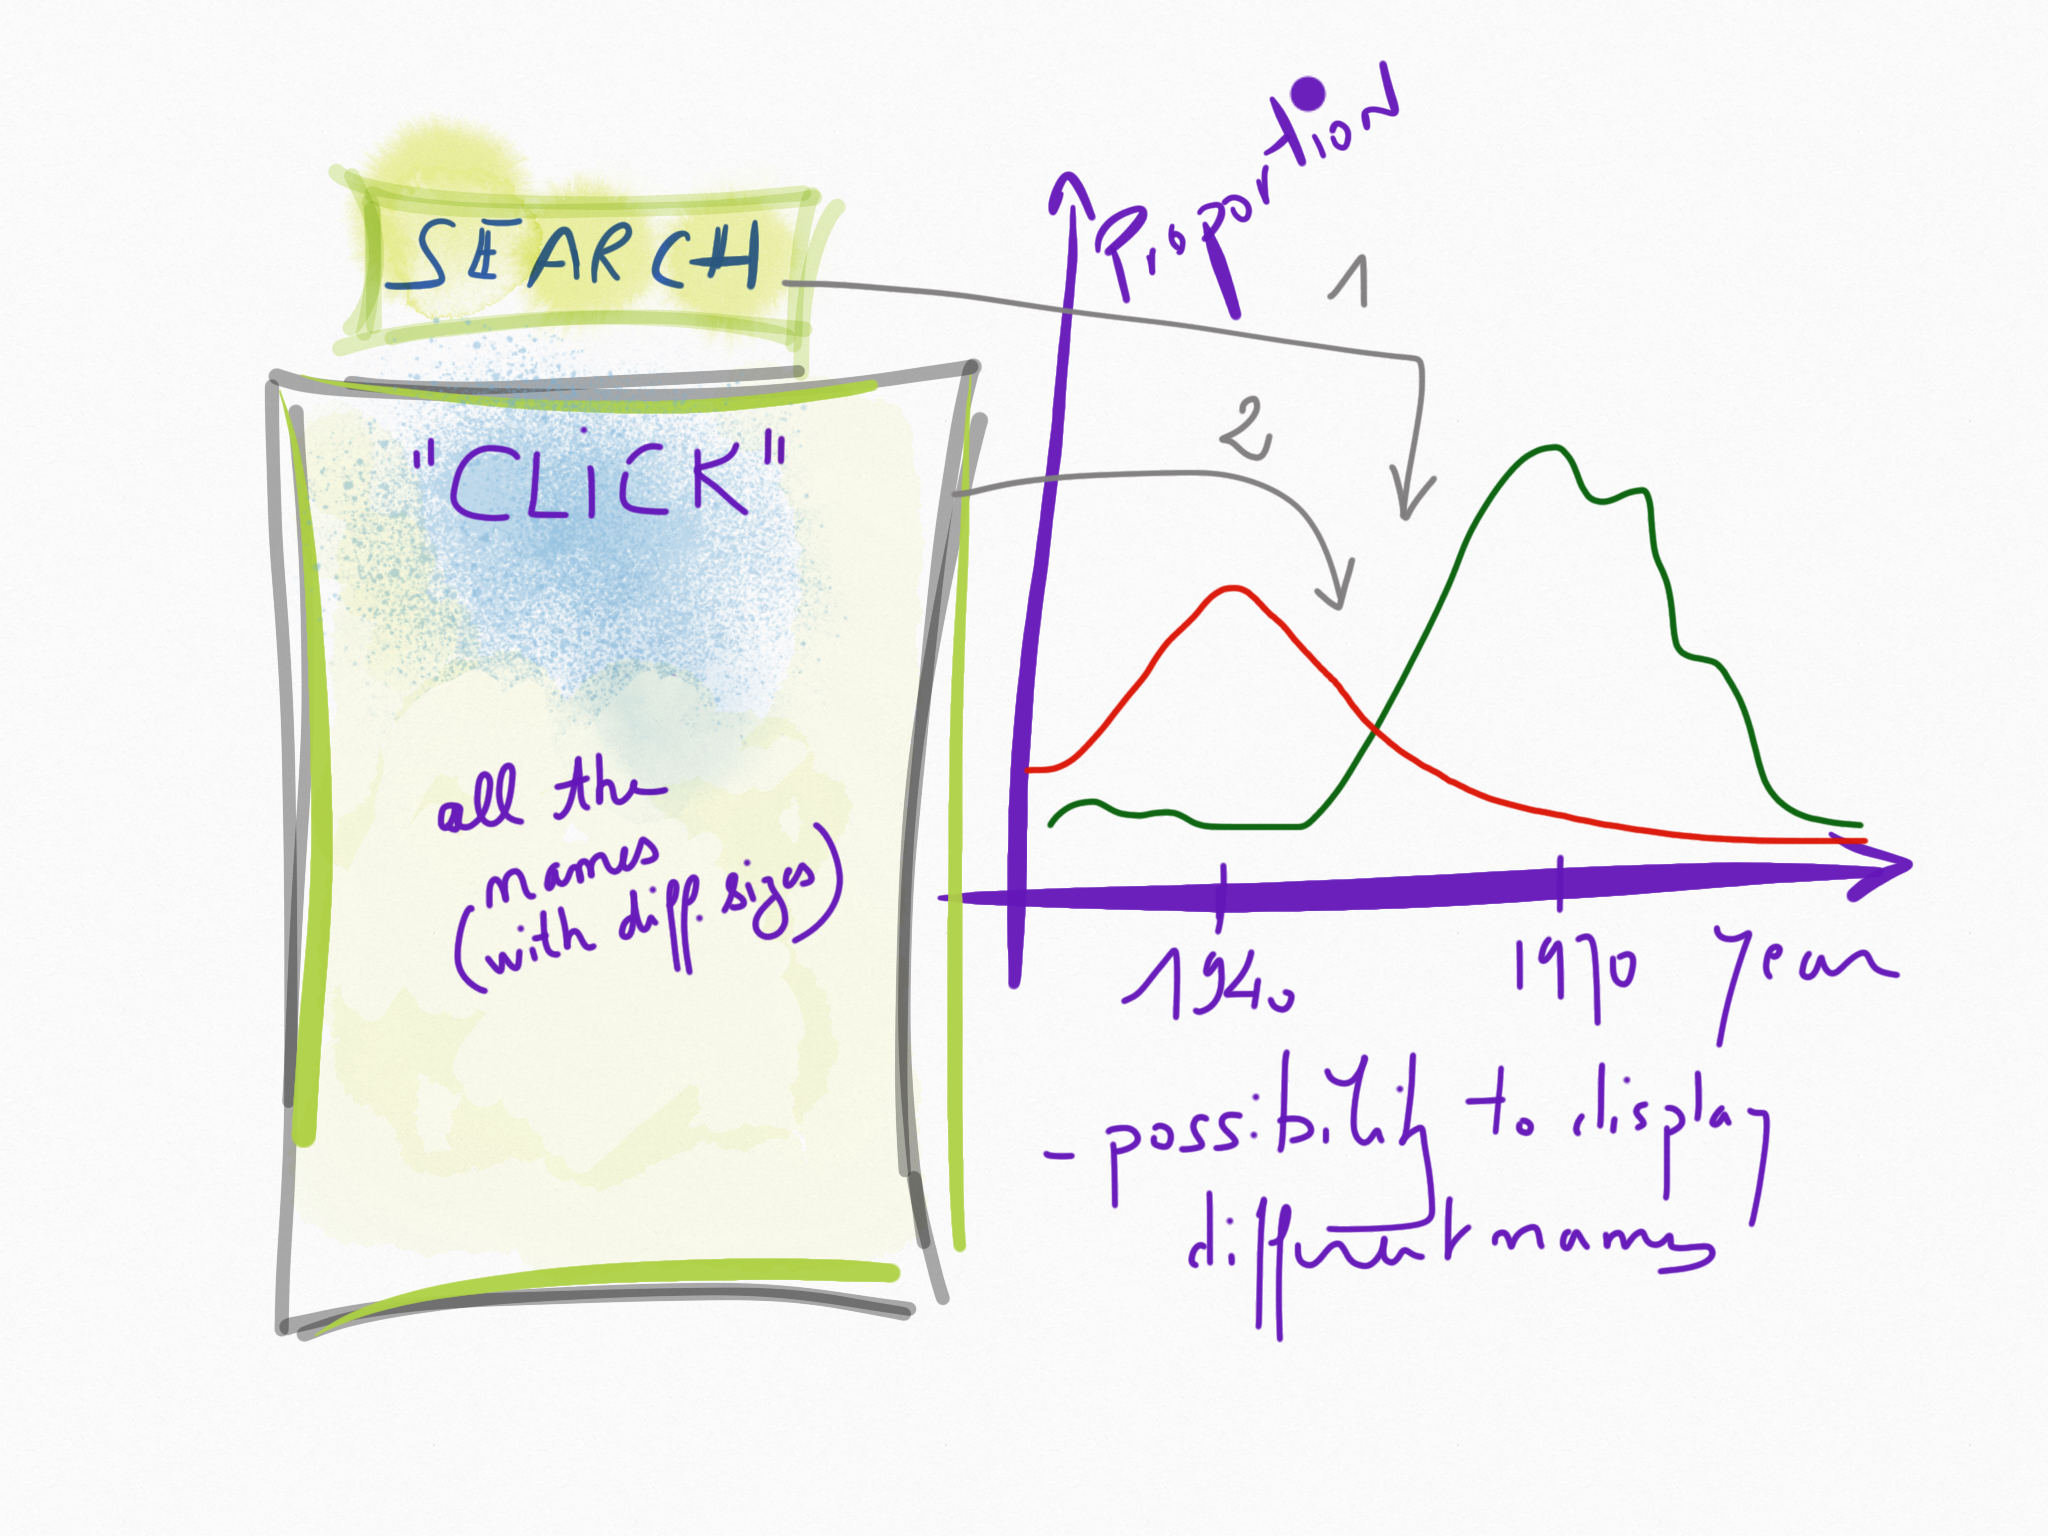 SEARCH
"CLiCK"
all the
names
(with diff. sizes)
Proportion
1
2
1940
1970
Year
- possibility to display
different names